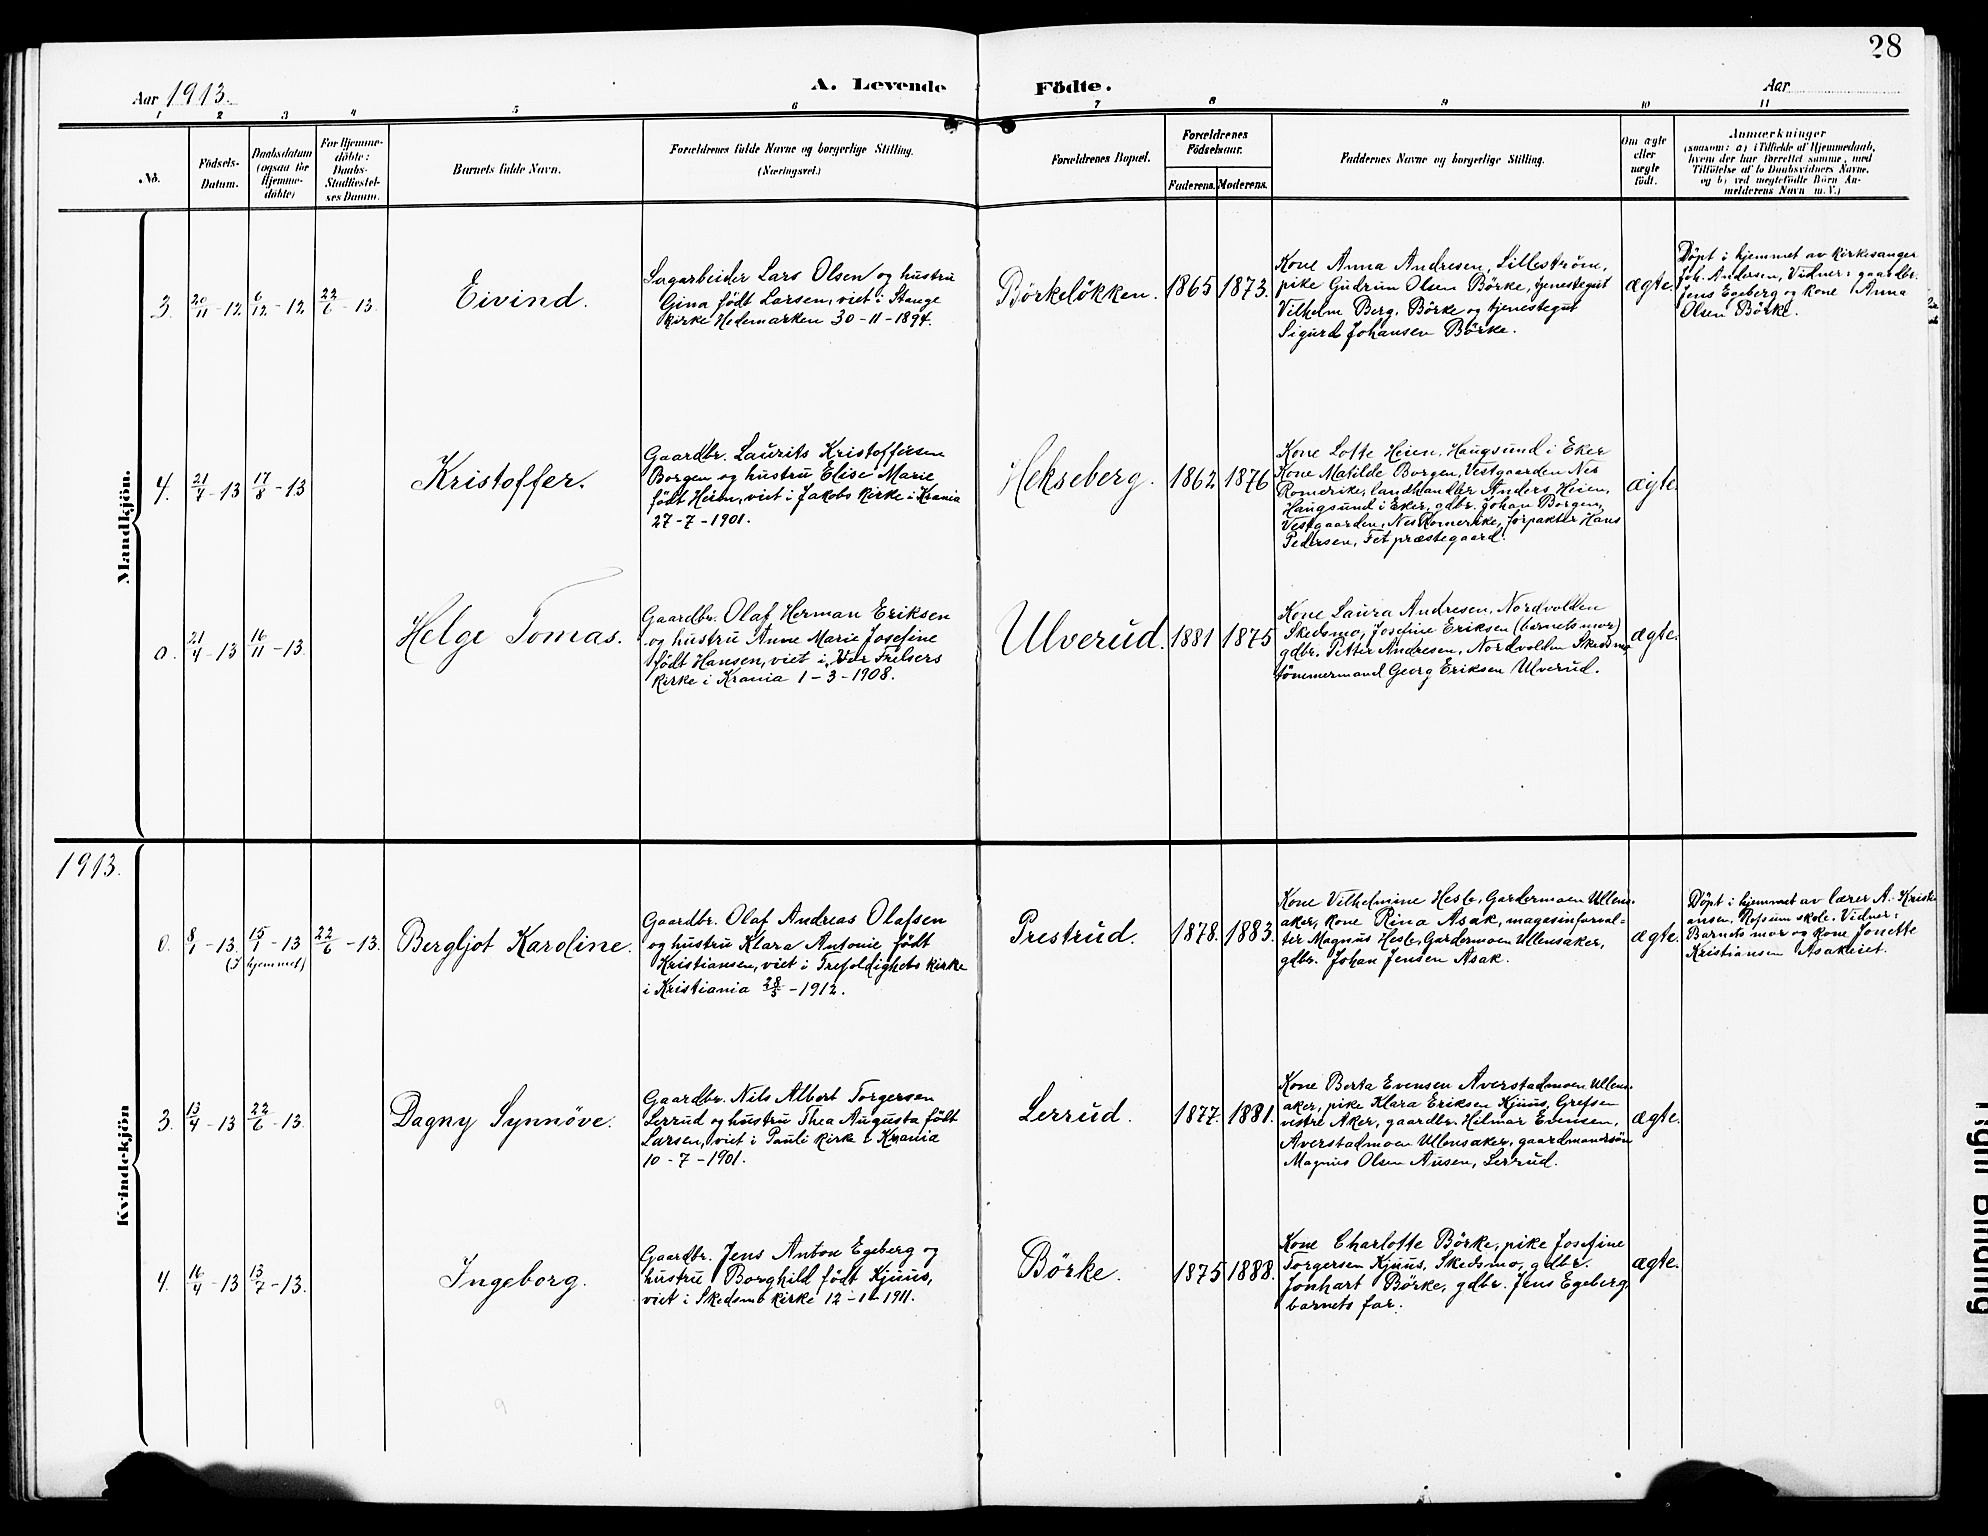 28
Aar 1913.
A. Levende
Födte.
Aar
1 2 3 4 5 6 7 8 9 10 11
No.
Födsels-
Datum.
Daabsdatum
(ogsaa för
Hjemme-
döbte)
For Hjemme-
döbte:
Daabs-
Stadfæstel-
ses Datum.
Barnets fulde Navn.
Forældrenes fulde Navne og borgerlige Stilling.
(Næringsvei.)
Forældrenes Bopæl.
Forældrenes
Födselsaar.
Faderens.
Moderens.
Faddernes Navne og borgerlig Stilling.
Om ægte
eller
uægte
födt.
Anmærkninger
(saasom: a) i Tilfælde af Hjemmedaab,
hvem der har forrettet samme, med
Tilföielse af to Daabsvidners Navne,
og b) ved uægtefödte Börn An-
melderens Navn m. V.)
Mandkjön.
3.
20/11 - 12
6/12 - 12
22/6 - 13.
Eivind.
Sagarbeider Lars Olsen og hustru
Gina född Larsen, viet i Stange
kirke Hedemarken 30-11-1894.
Börkelökken.
1865
1873.
Kone Anna Andresen, Lilleström,
pike Gudrun Olsen Börke, tjenestegut
Vilhelm Berg, Börke og tjenestegut
Sigurd Johansen Börke.
ægte.
Döpt i hjemmet av kirkesanger
Joh. Andersen, Vidner: gaardbr.
Jens Egeberg og kone Anna
Olsen Börke.
4.
21/4 - 13
17/8 - 13
Kristoffer.
Gaardbr. Laurits Kristoffersen
Borgen og hustru Elise Marie
født Heien, viet i Jakobs kirke i Krania
27-7-1901.
Hekseberg.
1862
1876
Kone Lotte Heien, Haugsund i Eker
Kone Matilde Borgen, Vestgaarden Nes
Romerike, landhandler Anders Heien,
Haugsund i Eker, gdbr. Johan Borgen,
Vestgaarden, Nes Romerike, forpakter Hans
Pedersen, Fet præstegaard.
ægte.
0.
21/4 - 13
16/11 - 13.
Helge Tomas.
Gaardbr. Olaf Herman Eriksen
og hustru Anne Marie Josefine
født Hansen, viet i Vor Frelsers
kirke i Krania 1-3-1908.
Ulverud.
1881
1875
Kone Laura Andresen, Nordvolden
Skedsmo, Josefine Eriksen (barnets mor)
gdbr. Petter Andresen, Nordvolden Skedsmo,
tömmermand Georg Eriksen Ulverud.
ægte.
1913.
Kvindekjön
0.
8/1 - 13.
15/1 - 13
(I hjemmet)
22/6 - 13.
Bergljot Karoline.
Gaardbr. Olaf Andreas Olafsen
og hustru Klara Antonie født
Kristiansen, viet i Trefoldighets kirke
i Kristiania 28/5 - 1912.
Prestrud.
1878.
1883.
Kone Vilhelmine Hesle, Gardermoen Ullens-
aker, kone Rina Asak, magasinforval-
ter Magnus Hesle, Gardermoen Ullensaker,
gdbr. Johan Jensen Asak.
ægte.
Döpt i hjemmet av lærer A. Kristi-
ansen, Rofsum skole. Vidner:
Barnets mor og kone Jonette
Kristiansen Asakeiet.
3.
13/4 - 13
22/6 - 13.
Dagny Synnöve.
Gaardbr. Nils Albert Torgersen
Lerrud og hustru Thea Augusta født
Larsen, viet i Pauli kirke i Krania
10-7-1901.
Lerrud.
1877.
1881.
Kone Berta Evensen Averstadmoen Ullens-
aker, pike Klara Eriksen Kjuus, Grefsen
vestre Aker, gaardbr. Hilmar Evensen,
Averstadmoen Ullensaker, gaardmandssön
Magnus Olsen Ausen, Lerrud.
ægte.
4.
16/4 - 13
13/7 - 13.
Ingeborg.
Gaardbr. Jens Anton Egeberg og
hustru Borghild født Kjuus,
viet i Skedsmo kirke 12-11-1911.
Börke.
1875
1888.
Kone Charlotte Börke, pike Josefine
Torgersen Kjuus, Skedsmo, gdbr.
Jonhart Börke, gdbr. Jens Egeberg,
barnets far.
ægte.
Tight Binding